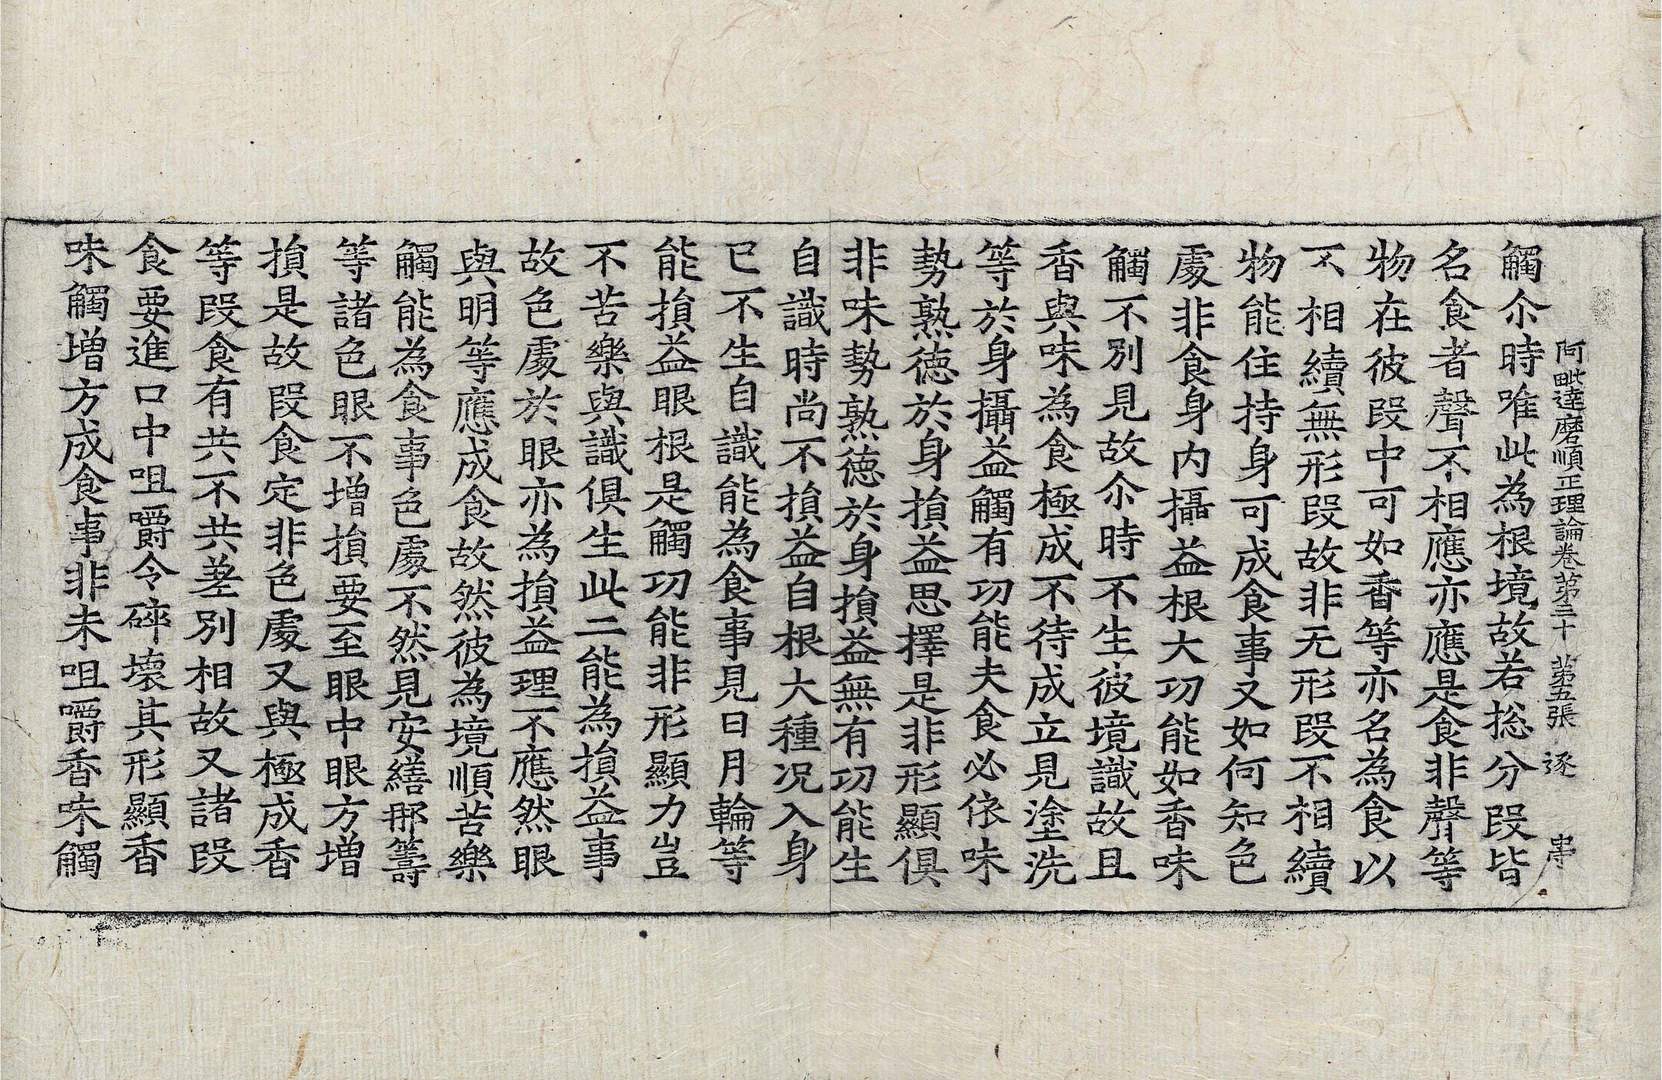 阿毗達磨順正理論卷第三十 第五張 逐
觸尒時唯此為根境故若捴分段皆
名食者聲不相應亦應是食非聲等
物在彼段中可如香等亦名為食以
不相續無形段故非无形段不相續
物能住持身可成食事又如何知色
處非食身内攝益根大功能如香味
觸不別見故尒時不生彼境識故且
香與味為食極成不待成立見塗洗
等於身攝益觸有功能夫食必依味
勢熟德於身損益思擇是非形顯俱
非味勢熟德於身損益無有功能生
自識時尚不損益自根大種况入身
已不生自識能為食事見日月輪等
能損益眼根是觸功能非形顯力豈
不苦樂與識俱生此二能為損益事
故色處於眼亦為損益理不應然眼
與明等應成食故然彼為境順苦樂
觸能為食事色處不然見安繕那籌
等諸色眼不增損要至眼中眼方增
損是故段食定非色處又與極成香
等段食有共不共差別相故又諸段
食要進口中咀嚼令碎壞其形顯香
味觸增方成食事非未咀嚼香味觸